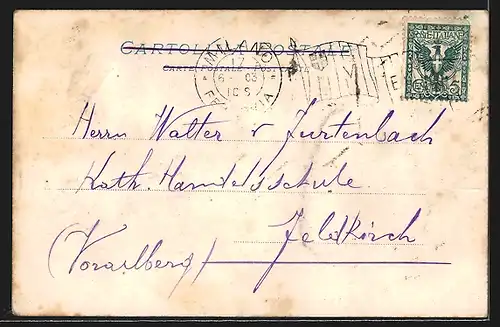 CARTOLINA POSTALE
CARTE POSTALE
MILANO
17
6 - 03
10 S
FERROVIA
POSTE ITALIANE
C. 5
Herrn Walter v Furtenbach
Kath. Handelsschule
Feldkirch
(Vorarlberg)